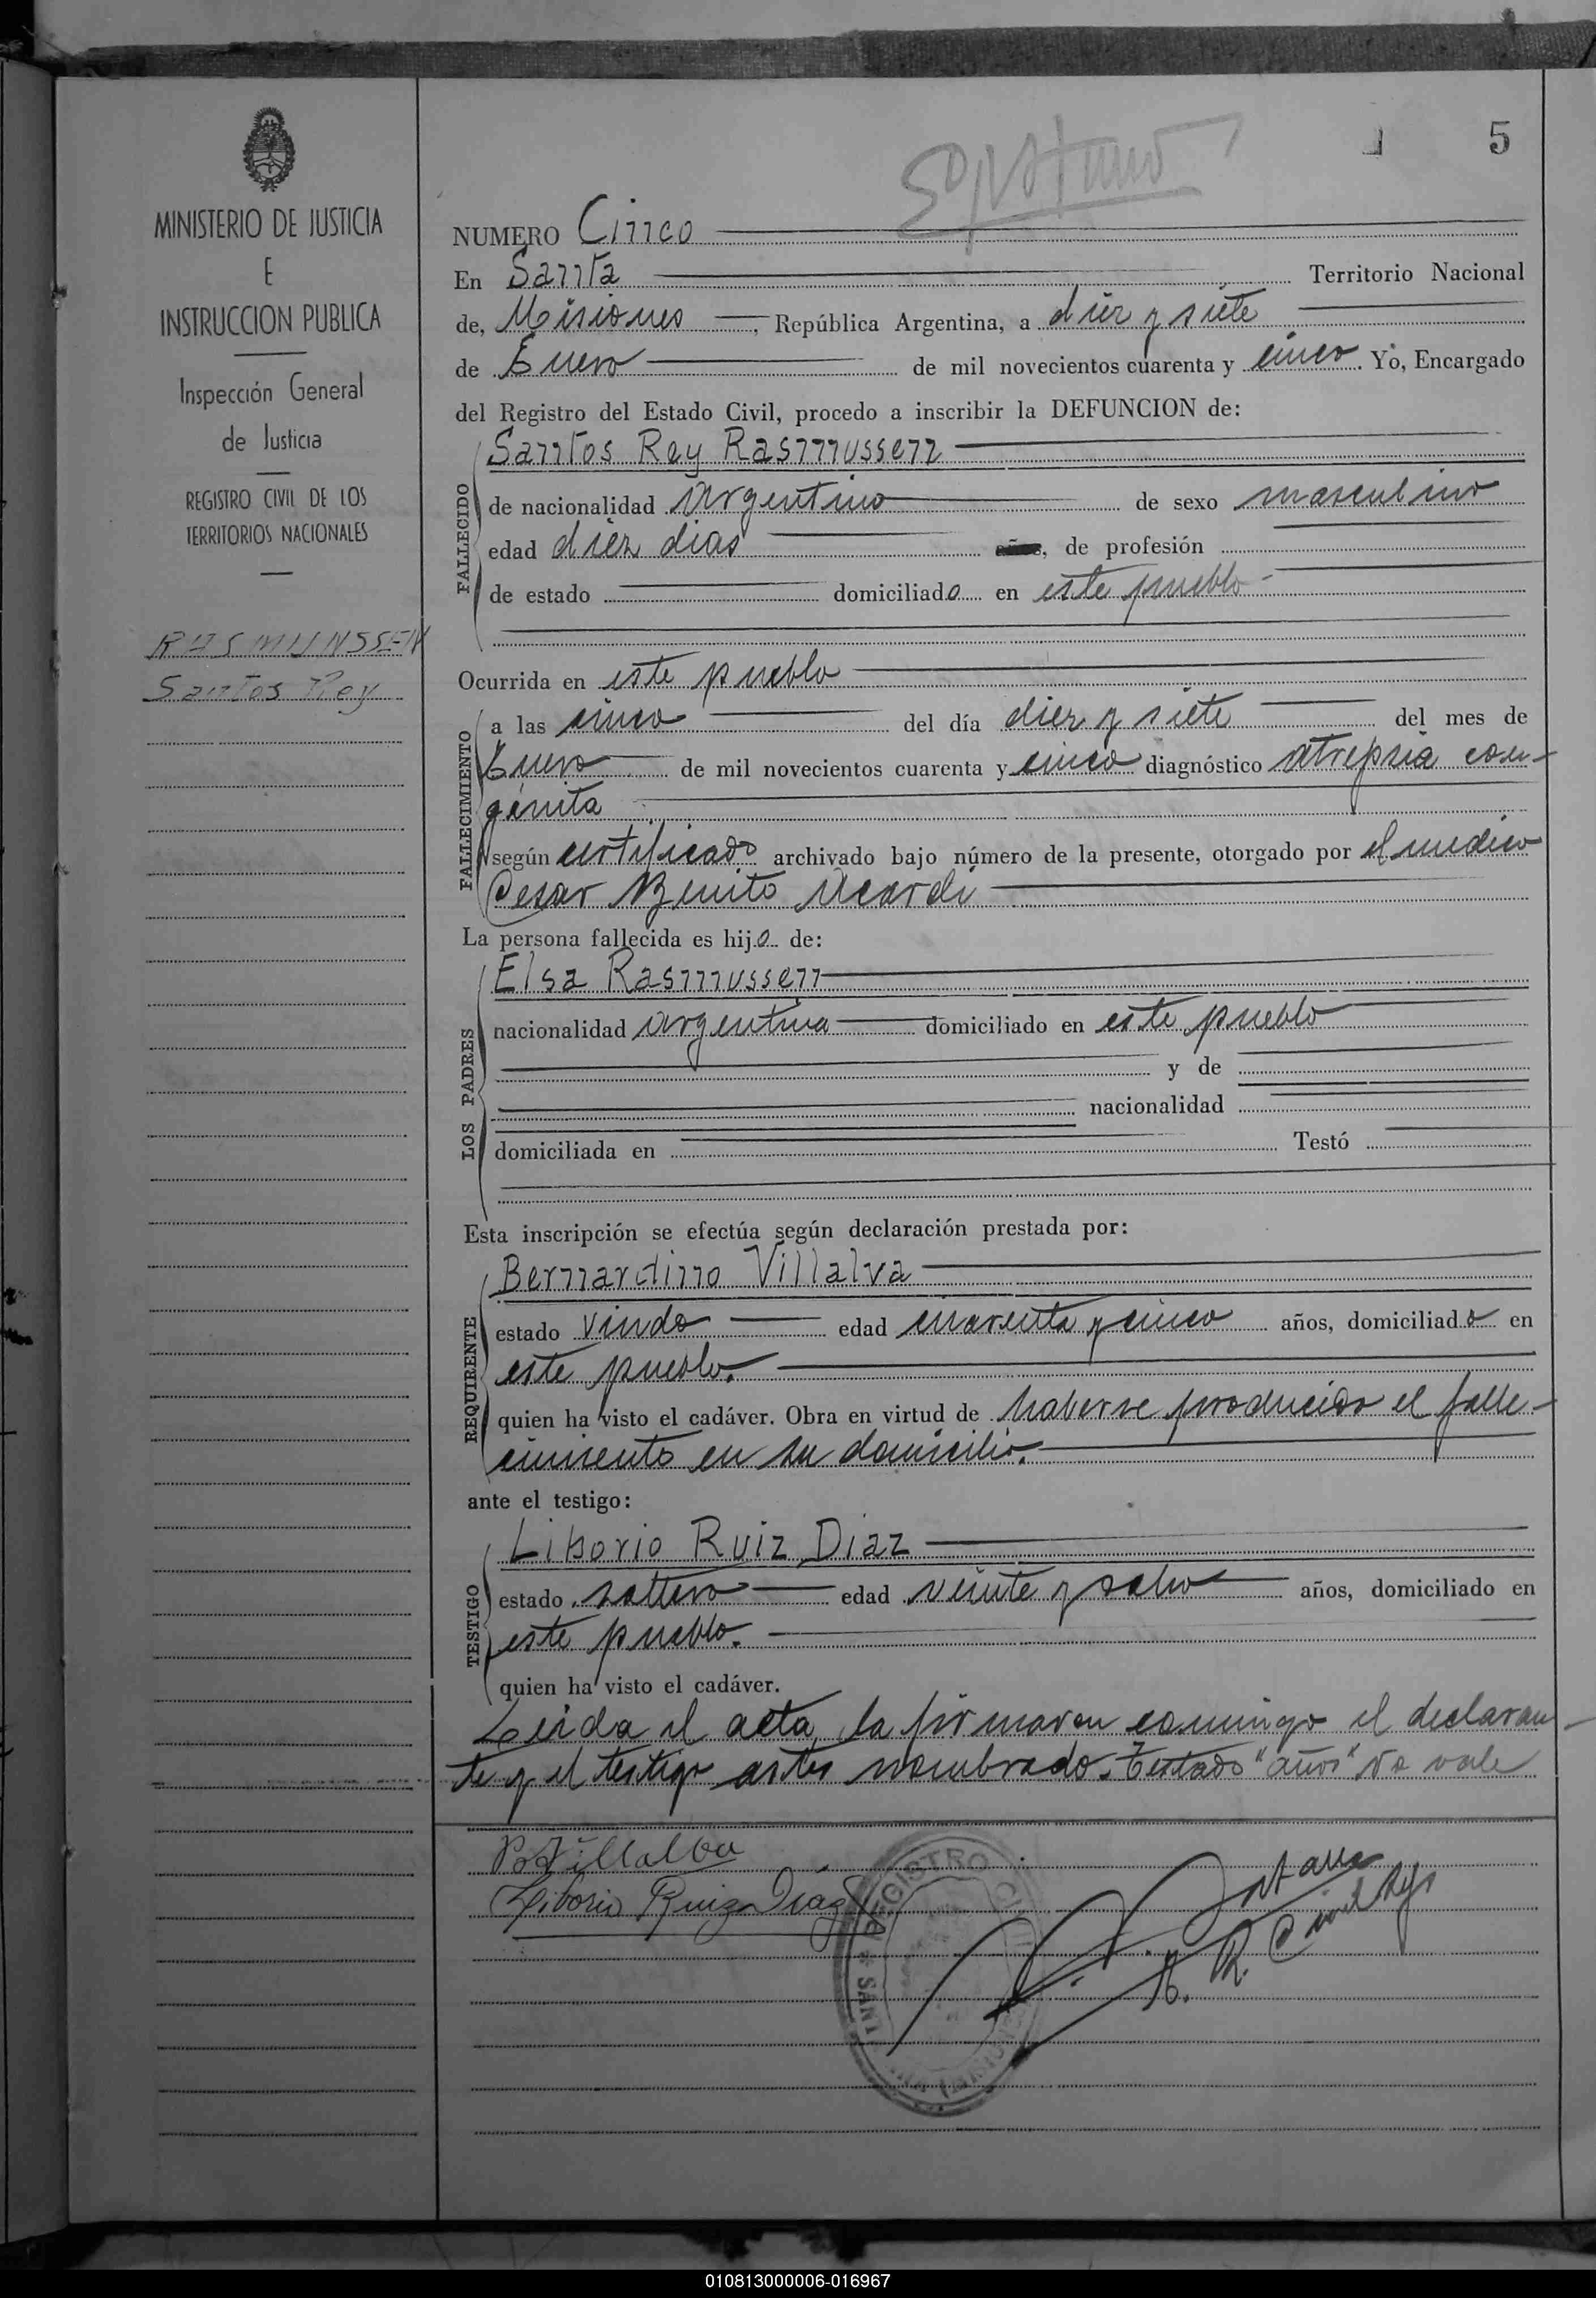 5
MINISTERIO DE JUSTICIA
E
INSTRUCCION PUBLICA
Inspección General
de Justicia
REGISTRO CIVIL DE LOS
TERRITORIOS NACIONALES
RASMUNSSEN
Santos Rey
NUMERO Cinco
En Santa Territorio Nacional
de, Misiones, República Argentina, a diez y siete
de Enero de mil novecientos cuarenta y cinco. Yo, Encargado
del Registro del Estado Civil, procedo a inscribir la DEFUNCION de:
Santos Rey Rasmussen
FALLECIDO
de nacionalidad argentino de sexo masculino
edad diez dias años, de profesión
de estado domiciliado en este pueblo
Ocurrida en este pueblo
FALLECIMIENTO
a las cinco del día diez y siete del mes de
Enero de mil novecientos cuarenta y cinco diagnóstico atrepsia con-
génita
según certificado archivado bajo número de la presente, otorgado por el medico
Cesar Benito Acardi
La persona fallecida es hijo de:
LOS PADRES
Elsa Rasmussen
nacionalidad argentina domiciliado en este pueblo
y de
nacionalidad
domiciliada en Testó
Esta inscripción se efectúa según declaración prestada por:
REQUIRENTE
Bernardino Villalva
estado viudo edad cuarenta y cinco años, domiciliado en
este pueblo.
quien ha visto el cadáver. Obra en virtud de haberse producido el falle-
cimiento en su domicilio.
ante el testigo:
TESTIGO
Liborio Ruiz Diaz
estado soltero edad veinte y ocho años, domiciliado en
este pueblo.
quien ha visto el cadáver.
Leida el acta, la firmaron conmigo el declaran-
te y el testigo antes nombrado. Testado "años" no vale
B. Villalba
Liborio Ruiz Diaz
REGISTRO CIVIL
010813000006-016967